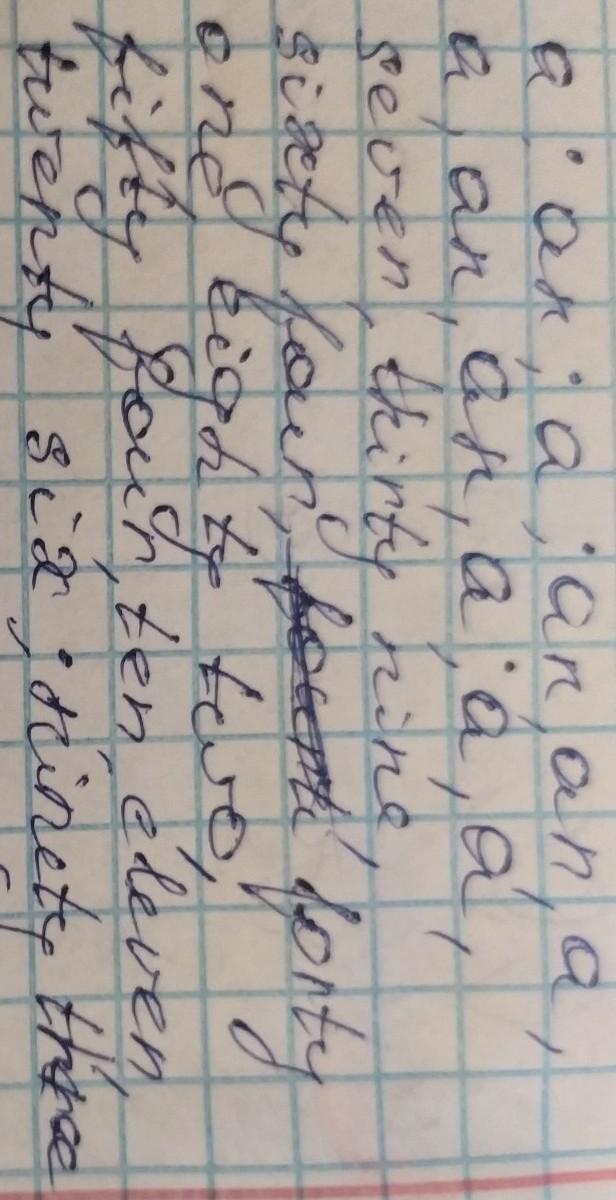 a, an, a, an, an, a,
a, an, an, a, a, a,
seven, thirty nine,
sixty four, forty
one, eighty two,
fifty four, ten eleven
twenty six, ninety three